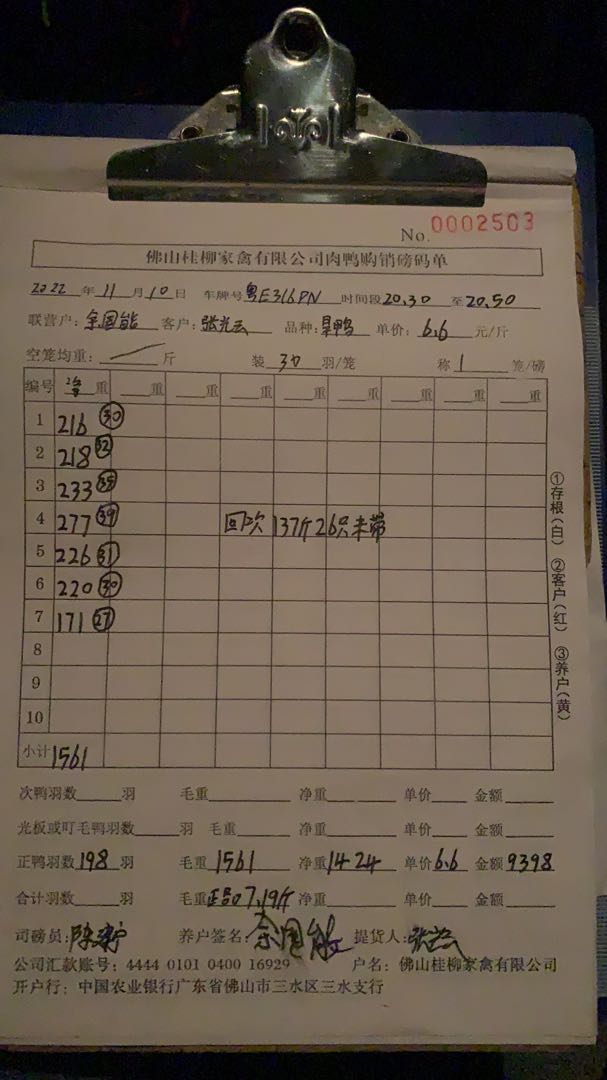 No. 0002503
佛山桂柳家禽有限公司肉鸭购销磅码单
2022 年 11 月 10 日 车牌号 粤E316PN 时间段 20.30 至 20.50
联营户: 余国能 客户: 张光云 品种: 鸭 单价: 6.6 元/斤
空笼均重: 斤 装 30 羽/笼 称 1 笼/磅
编号 净重 重 重 重 重 重 重 重 重
1 216 30
2 218 32
3 233 35
4 277 39 回次 137斤26只未带
5 226 31
6 220 30
7 171 27
8
9
10
小计 1561
①存根(白) ②客户(红) ③养户(黄)
次鸭羽数 羽 毛重 净重 单价 金额
光板或叮毛鸭羽数 羽 毛重 净重 单价 金额
正鸭羽数 198 羽 毛重 1561 净重 1424 单价 6.6 金额 9398
合计羽数 羽 毛重 7.19斤 净重 单价 金额
司磅员: 陈 养户签名: 余国能 提货人: 张
公司汇款账号: 4444 0101 0400 16929 户名: 佛山桂柳家禽有限公司
开户行: 中国农业银行广东省佛山市三水区三水支行